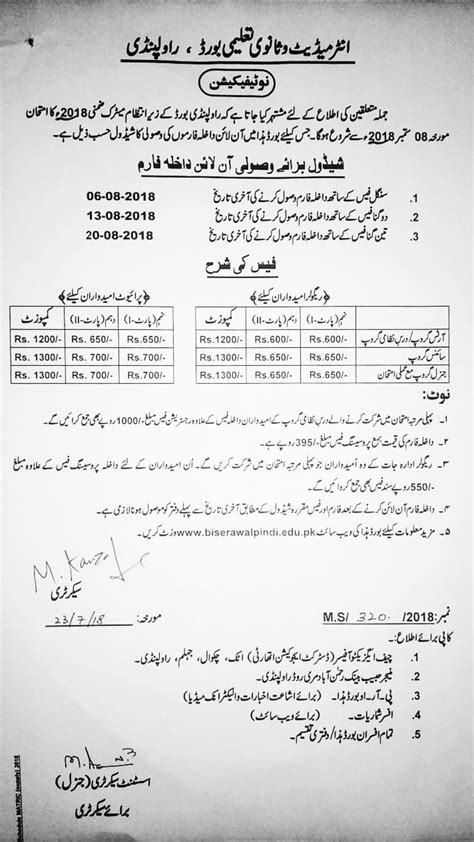 انٹرمیڈیٹ و ثانوی تعلیمی بورڈ ، راولپنڈی
نوٹیفیکیشن
جملہ متعلقین کی اطلاع کے لئے مشتہر کیا جاتا ہے کہ راولپنڈی بورڈ کے زیر انتظام میٹرک ضمنی 2018ء کا امتحان
مورخہ 08 ستمبر 2018ء سے شروع ہوگا۔ جس کیلئے بورڈ ہذا میں آن لائن داخلہ فارموں کی وصولی کا شیڈول حسب ذیل ہے۔
شیڈول برائے وصولی آن لائن داخلہ فارم
1. سنگل فیس کے ساتھ داخلہ فارم وصول کرنے کی آخری تاریخ 06-08-2018
2. دوگنا فیس کے ساتھ داخلہ فارم وصول کرنے کی آخری تاریخ 13-08-2018
3. تین گنا فیس کے ساتھ داخلہ فارم وصول کرنے کی آخری تاریخ 20-08-2018
فیس کی شرح
﴿ریگولر امیدواران کیلئے﴾ ﴿پرائیوٹ امیدواران کیلئے﴾
نہم (پارٹ-I) دہم (پارٹ-II) کمپوزٹ نہم (پارٹ-I) دہم (پارٹ-II) کمپوزٹ
آرٹس گروپ/درس نظامی گروپ Rs.600/- Rs.650/- Rs.1200/- Rs.650/- Rs. 650/- Rs. 1200/-
سائنس گروپ Rs.650/- Rs.650/- Rs.1300/- Rs.700/- Rs. 700/- Rs. 1300/-
جنرل گروپ مع عملی امتحان Rs.650/- Rs.650/- Rs.1300/- Rs.700/- Rs. 700/- Rs. 1300/-
نوٹ:
۱۔ پہلی مرتبہ امتحان میں شرکت کرنے والے درس نظامی گروپ کے امیدواران داخلہ فیس کے علاوہ رجسٹریشن فیس مبلغ -/1000 روپے بھی جمع کرائیں گے۔
۲۔ داخلہ فارم کی قیمت بمع پروسیسنگ فیس مبلغ -/395 روپے ہے۔
۳۔ ریگولر ادارہ جات کے وہ امیدواران جو پہلی مرتبہ امتحان میں شرکت کریں گے۔ ان امیدواران کے لئے داخلہ پروسیسنگ فیس کے علاوہ مبلغ
-/550 روپے سند فیس بھی جمع کرائیں گے۔
۴۔ داخلہ فارم آن لائن کرنے کے بعد فارم اور فیس مقررہ شیڈول کے مطابق آخری تاریخ سے پہلے دفتر کو موصول ہونا لازمی ہے۔
۵۔ مزید معلومات کیلئے بورڈ ہذا کی ویب سائٹ www.biserawalpindi.edu.pk وزٹ کریں۔
سیکرٹری
نمبر: M.S/ 320 /2018 مورخہ: 23/7/18
کاپی برائے اطلاع:
1. چیف ایگزیکٹو آفیسر (ڈسٹرکٹ ایجوکیشن اتھارٹی) اٹک، چکوال، جہلم، راولپنڈی۔
2. منیجر حبیب بینک رحمٰن آباد مری روڈ راولپنڈی۔
3. پی۔ آر۔ او بورڈ ہذا۔ (برائے اشاعت اخبارات و الیکٹرانک میڈیا)
4. افسر شماریات۔ (برائے ویب سائٹ)
5. تمام افسران بورڈ ہذا/دفتری تقسیم۔
اسٹنٹ سیکرٹری (جنرل)
برائے سیکرٹری